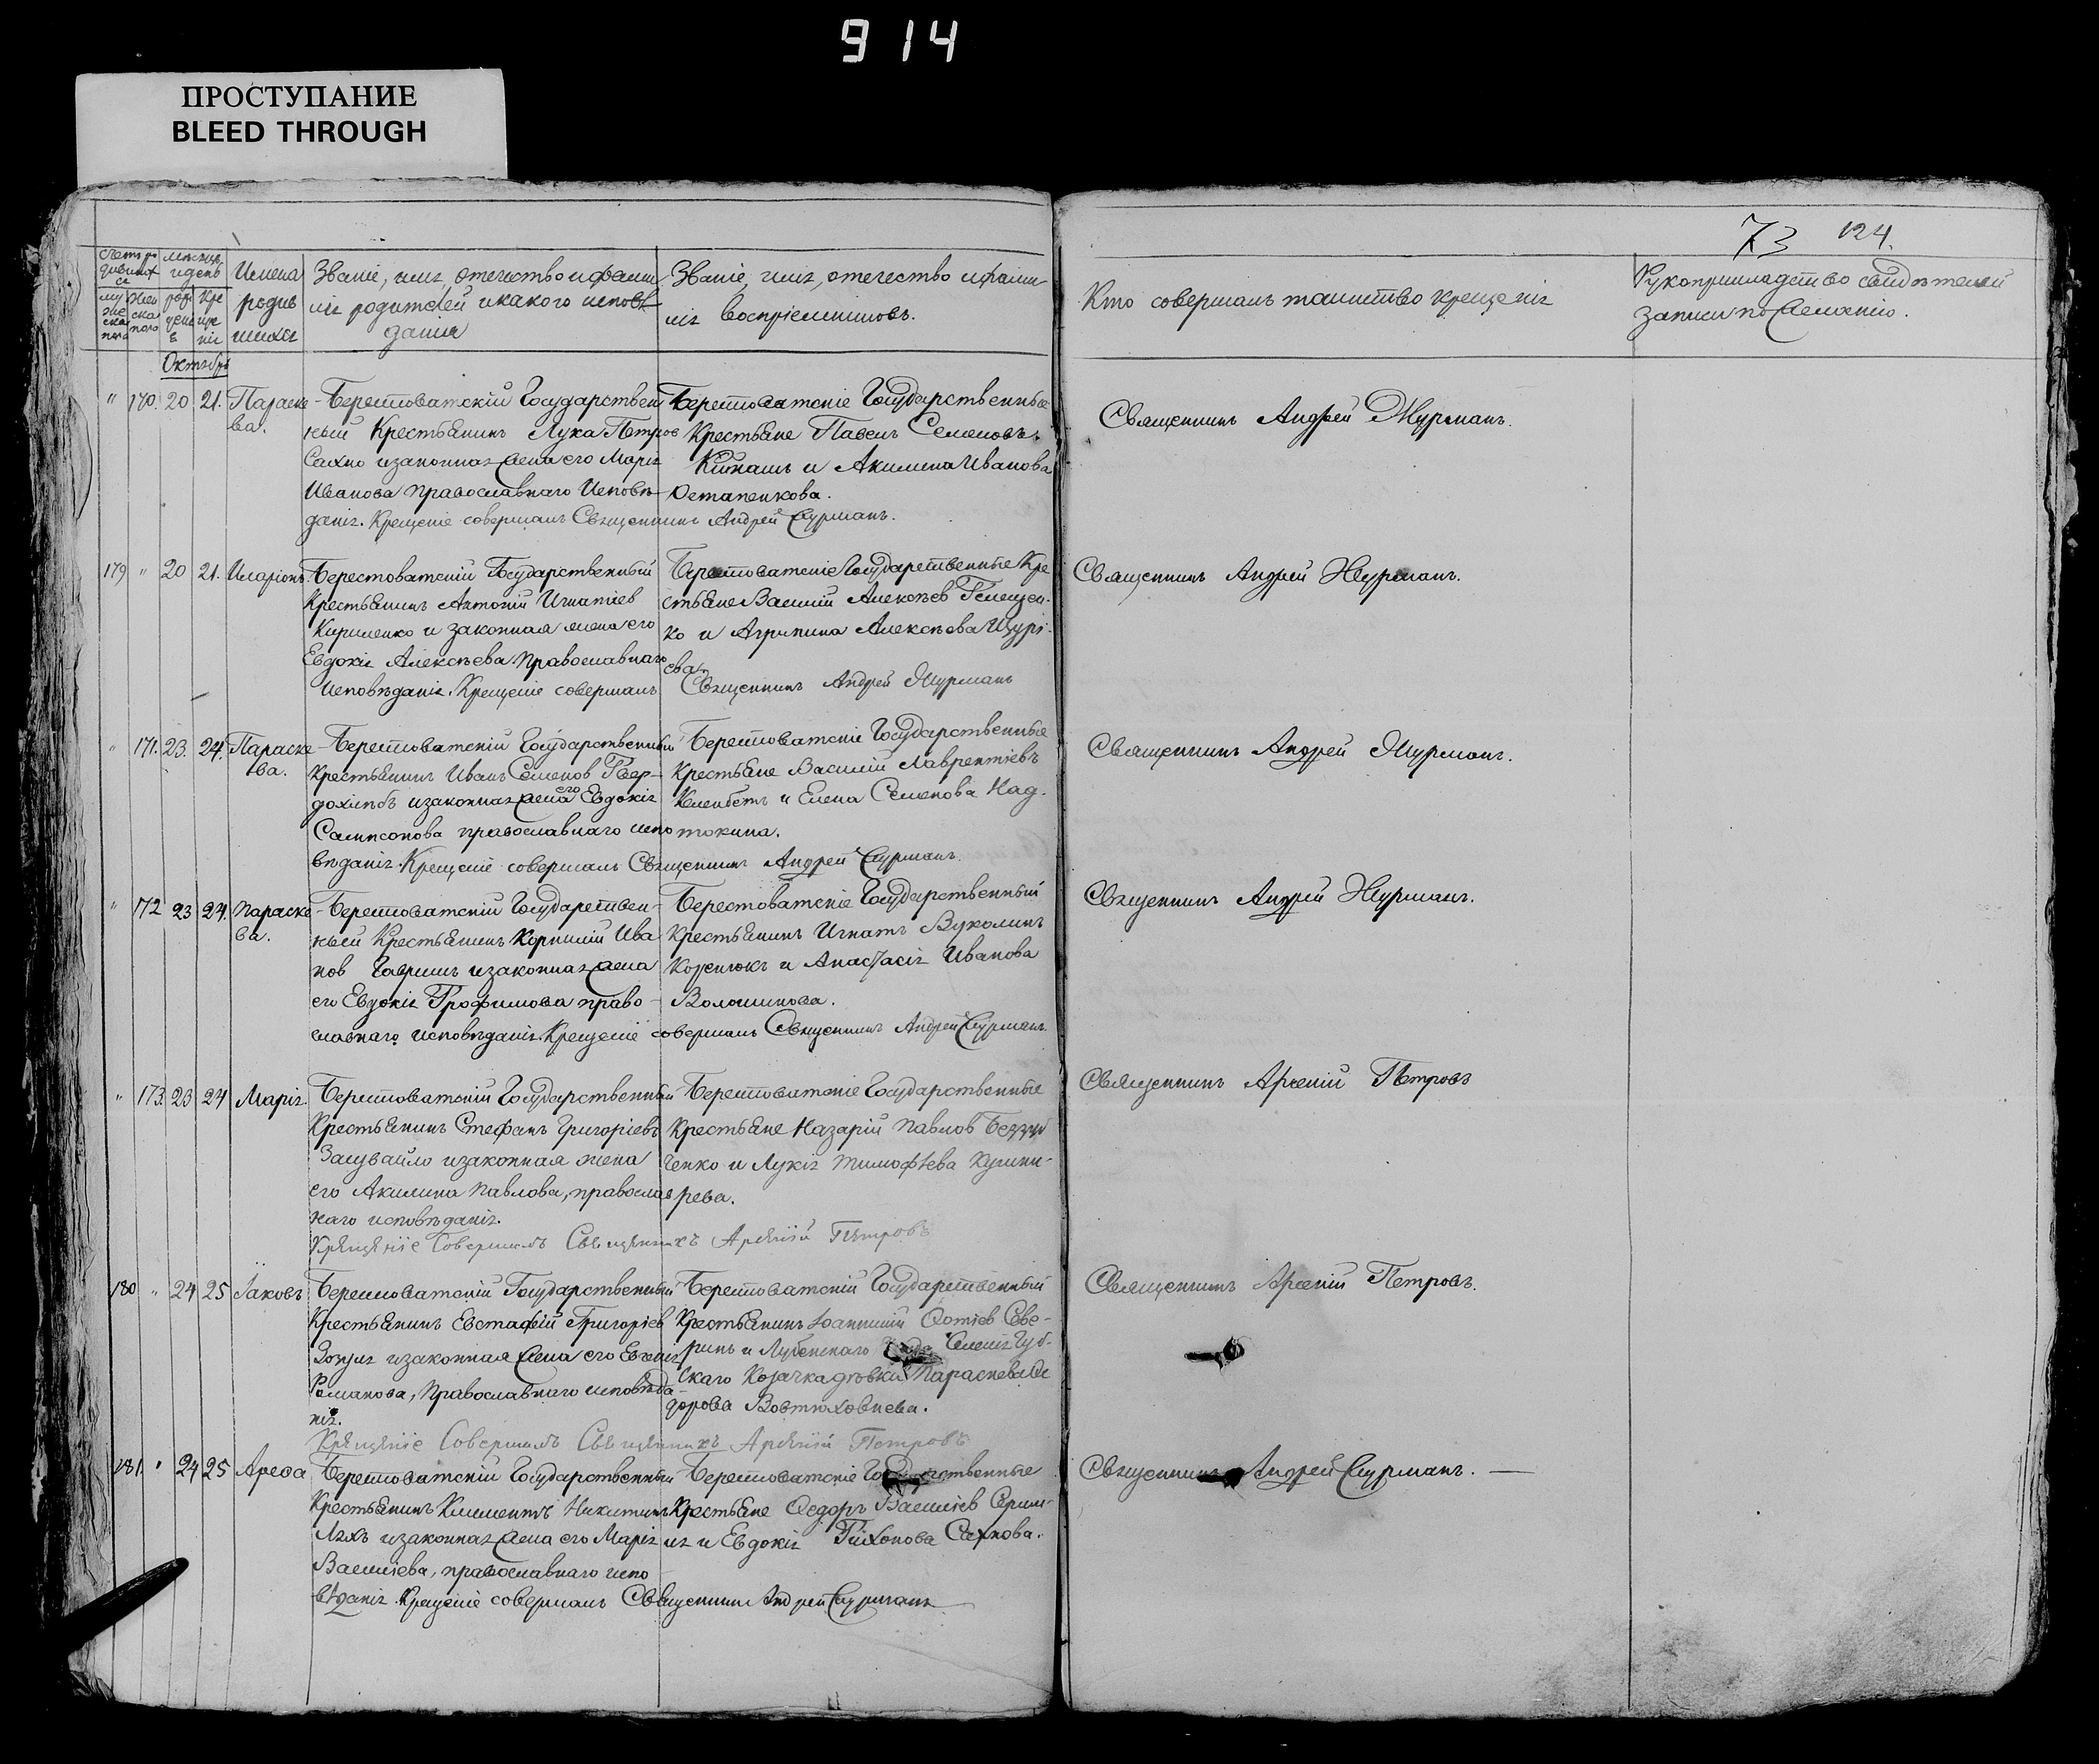 914
ПРОСТУПАНИЕ
BLEED THROUGH
73 124.
Имена родив шихся
Званіе, имя, отечество и фамилія родителей и какого исповѣданія
Званіе, имя, отечество и фамилія воспріемниковъ.
Кто совершалъ таинство крещенія
Рукоприкладство свидѣтелей записи по желанію.
Октябрь
" 170. 20 21. Параске-
ва.
Берестоватскій Государствен
ный Крестьянинъ Лука Петров
Сахно и законная жена его Марія
Иванова православнаго Исповѣ-
данія. Крещеніе совершалъ Священникъ Андрей Журманъ.
Берестоватскіе Государственные
Крестьяне Павелъ Семеновъ
и Акилина Иванова
Остапенкова.
Священникъ Андрей Журманъ.
179 " 20 21. Иларіонъ.
Берестоватскій Государственный
Крестьянинъ Антоній Игнатіев
Кириленко и законная жена его
Евдокія Алексѣева Православнаго
Исповѣданія. Крещеніе совершалъ Священникъ Андрей Журманъ
Берестоватскіе Государственные Кре
стьяне Василій Алексѣев
ко и Агрипина Алексѣева
ева.
Священникъ Андрей Журманъ.
" 171. 23. 24. Параске-
ва.
Берестоватскій Государственный
Крестьянинъ Иванъ Семенов Твер-
дохлѣбъ и законная жена его Евдокія
Сампсонова православнаго испо
вѣданія. Крещеніе совершалъ Священникъ Андрей Журманъ.
Берестоватскіе Государственные
Крестьяне Василій Лаврентіевъ
и Елена Семенова Над-
точина.
Священникъ Андрей Журманъ.
" 172 23 24. Параске-
ва.
Берестоватскій Государствен-
ный Крестьянинъ Корнилій Ива
нов Гавришъ и законная жена
его Евдокія Трофимова право-
славнаго исповѣданія. Крещеніе совершалъ Священникъ Андрей Журманъ.
Берестоватскіе Государственный
Крестьянинъ Игнатъ Вуколинъ
и Анастасія Иванова
Волошинова.
Священникъ Андрей Журманъ.
" 173. 23 24 Марія.
Берестоватскій Государственный
Крестьянинъ Стефанъ Григоріевъ
и законная жена
его Акилина Павлова, православ
наго исповѣданія.
Крещеніе Совершалъ Священникъ Арсеній Петровъ
Берестоватскіе Государственные
Крестьяне Назарій Павлов
ченко и Лукія Тимофѣева
рева.
Священникъ Арсеній Петровъ
180 " 24 25 Іаковъ
Берестоватскій Государственный
Крестьянинъ Евстафій Григоріев
и законная жена его Евгенія
Романова, Православнаго исповѣда-
нія.
Крещеніе Совершалъ Священникъ Арсеній Петровъ
Берестоватскій Государственный
Крестьянинъ Іоанникій Фотіев Севе-
ринъ и Лубенскаго
Параскева Ѳе
дорова Вовтюховнева.
Священникъ Арсеній Петровъ.
181. " 24 25 Арефа
Берестоватскій Государственный
Крестьянинъ Климентъ Никитинъ
Ляхъ и законная жена его Марія
Василіева, православнаго испо
вѣданія. Крещеніе совершалъ Священникъ Андрей Журманъ
Берестоватскіе Государственные
Крестьяне Ѳедоръ Василіев
и Евдокія Тихонова Сахнова.
Священникъ Андрей Журманъ.